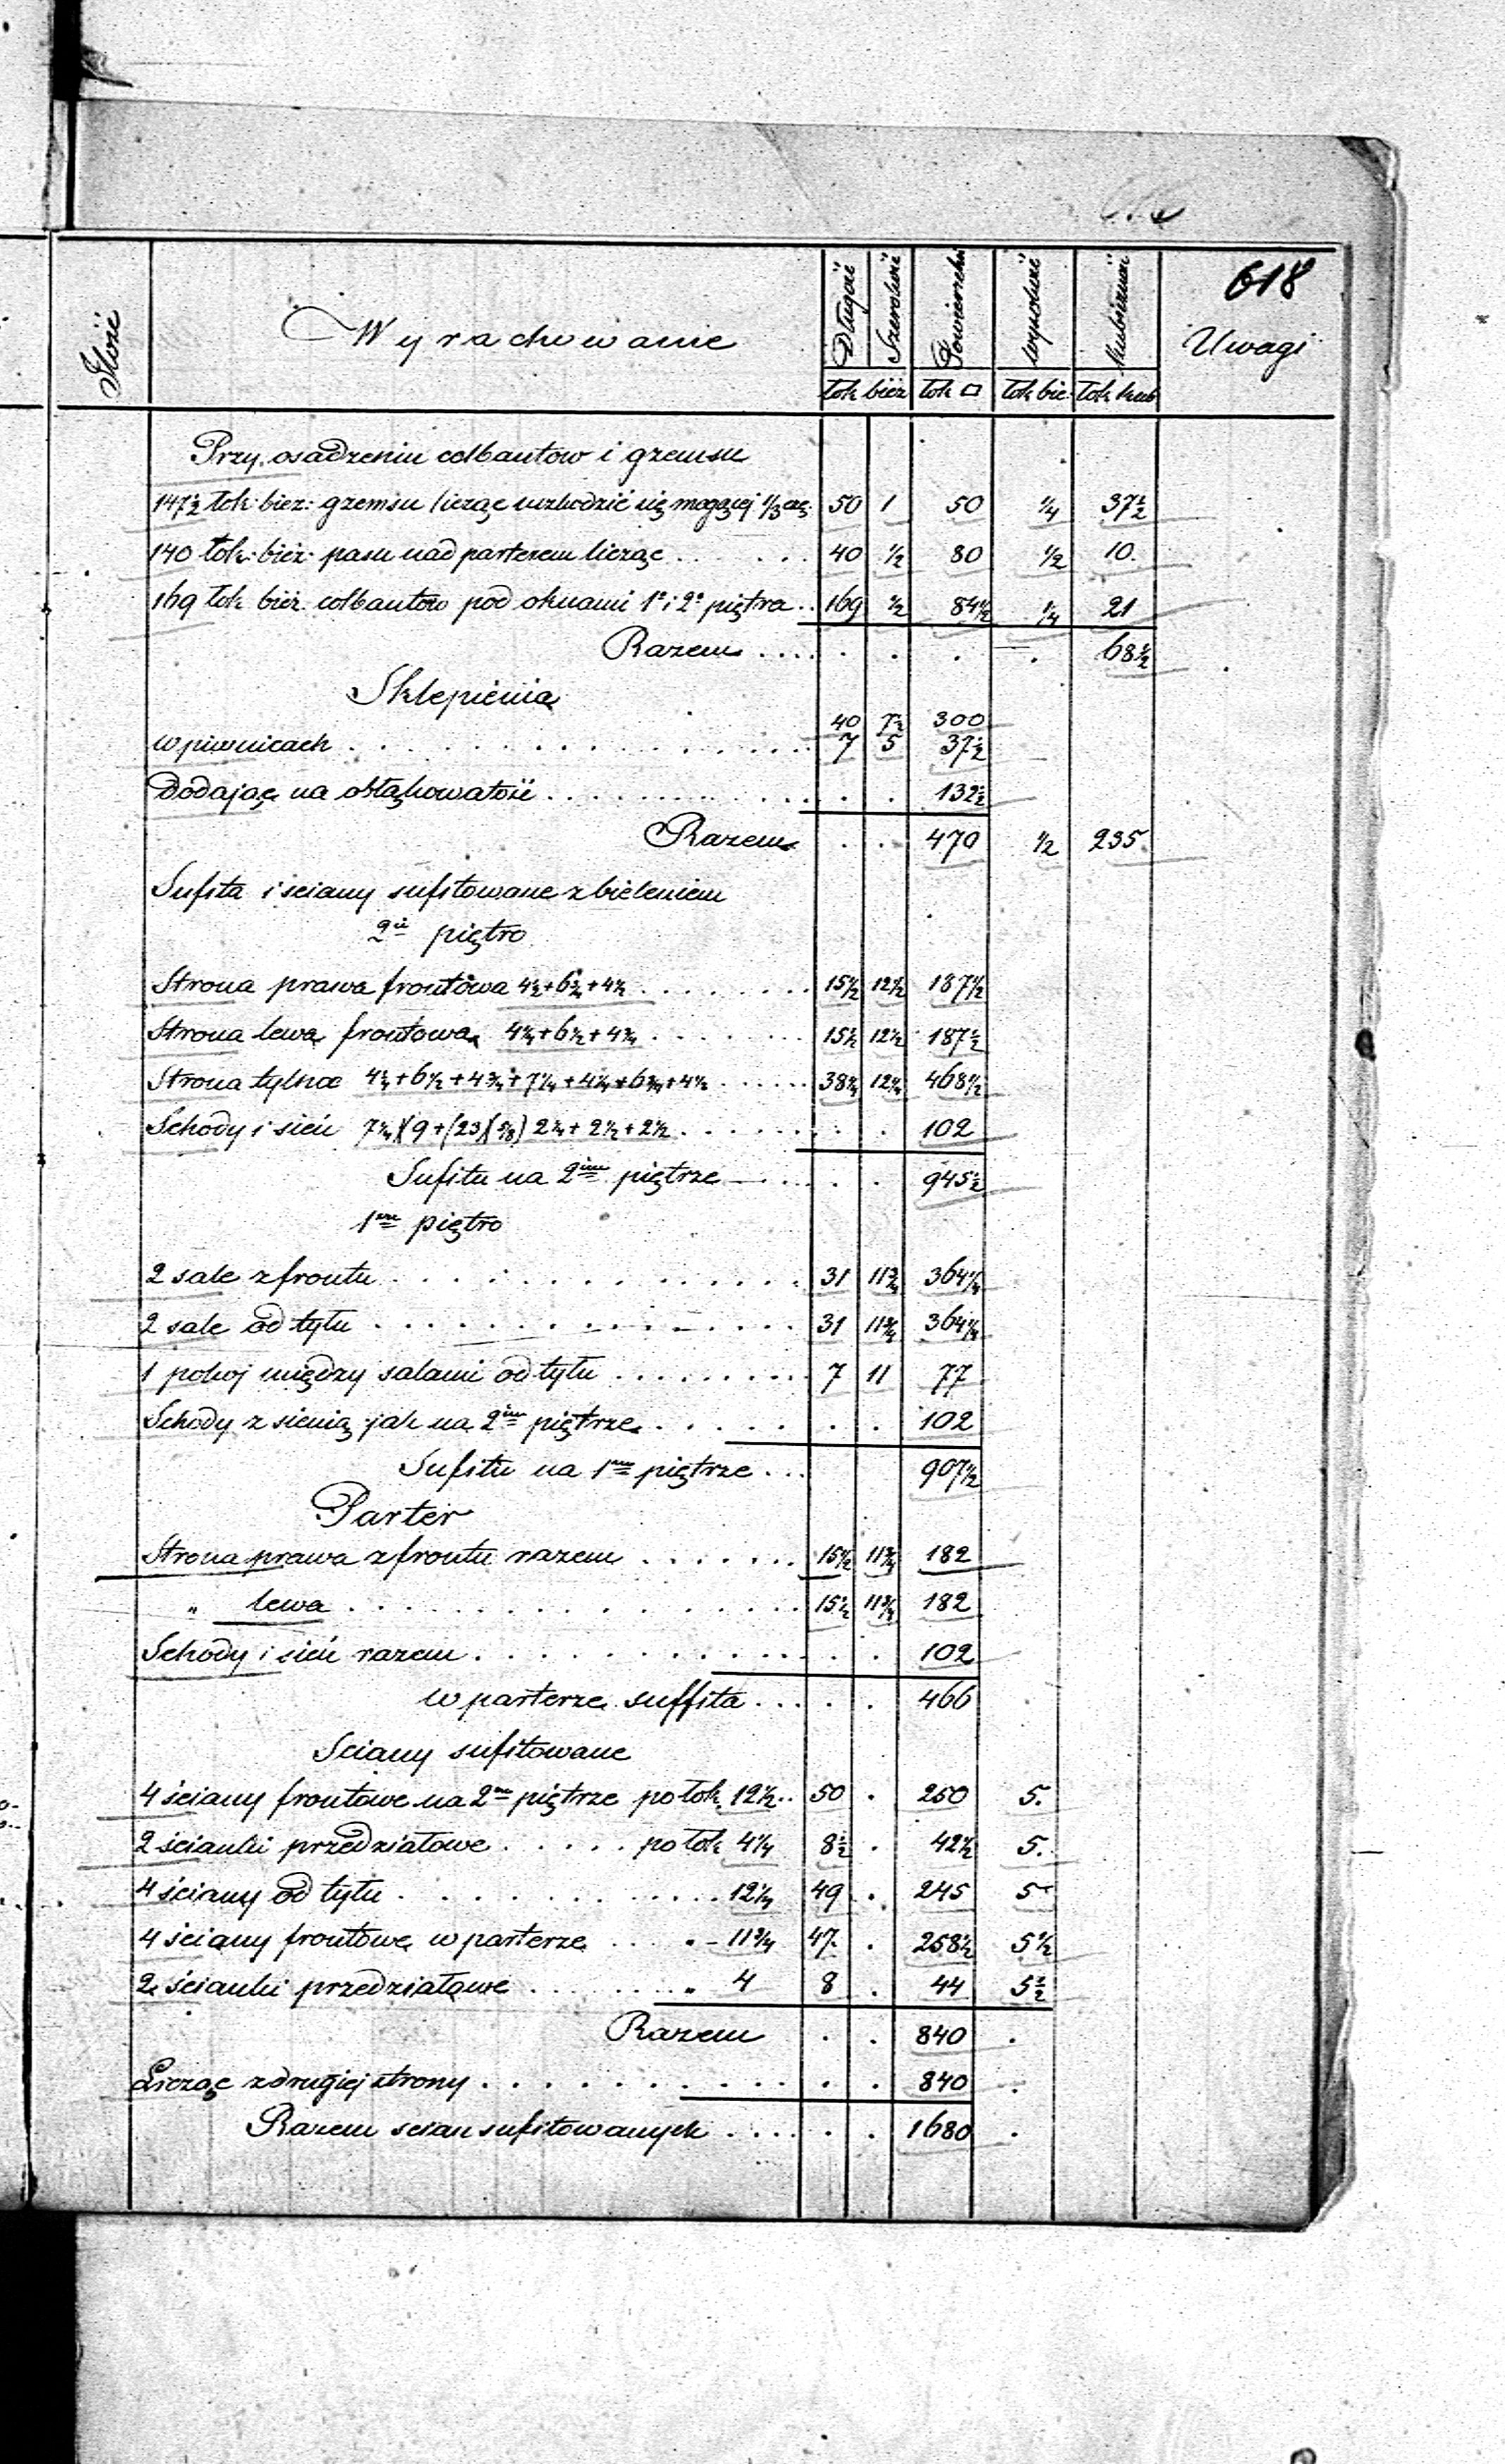 618
Ilość Wyrachowanie Długość Szerokość Powierzchni wysokość Kubiczność Uwagi
łok bież łok □ łok bie: łok kub
Przy osadzeniu colbantow i gzemsu
147½ łok: bież: gzemsu licząc uszkodzić się mogącej ⅓ czę: 50 1 50 ¾ 37½
140 łok: bież: pasu nad parterem licząc . . . . 40 ½ 80 ½ 10.
169 łok bież. colbantów pod oknami 1º i 2º piętra . . 169 ½ 84½ ¼ 21
Razem . . . . 68½
Sklepienia
40 7½ 300
w piwnicach . . . . 7 5 37½
Dodając na obłąkowatość . . . . 132½
Razem 470 ½ 235.
Sufita i ściany sufitowane z bieleniem
2ie piętro
Strona prawa frontowa 4½+6½+4½ . . . . 15½ 12½ 187½
Strona lewa frontowa 4¾+6½+4¾ . . . . 15½ 12½ 187½
Strona tylna 4¾+6½+4¾+7¼+4¼+6¾+4½ . . . . 38¾ 12¼ 468½
Schody i sień . . . . 102
Sufitu na 2im piętrze . . . . 945½
1sze piętro
2 sale z frontu . . . . 31 11¾ 364¼
2 sale od tyłu . . . . 31 11¾ 364¼
1 pokoj między salami od tyłu . . . . 7 11 77
Schody z sienią jak na 2im piętrze . . . . 102
Sufitu na 1m piętrze . . . 907½
Parter
Strona prawa z frontu razem . . . . 15½ 11¾ 182
" lewa . . . . 15½ 11¾ 182
Schody i sień razem . . . . 102
w parterze suffita . . . . 466
Sciany sufitowane
4 ściany frontowe na 2m piętrze po łok. 12½ . . 50 . 250 5.
2 ścianki przedziałowe . . . . po łok 4¼ 8½ . 42½ 5.
4 ściany od tyłu . . . . 12¼ 49 . 245 5
4 ściany frontowe w parterze . . . „ 11¾ 47. . 258½ 5½
2 ścianki przedziałowe . . . . „ 4 8 . 44 5½
Razem . . 840 .
Licząc z drugiej strony . . . . 840 .
Razem scian sufitowanych . . . . 1680 .